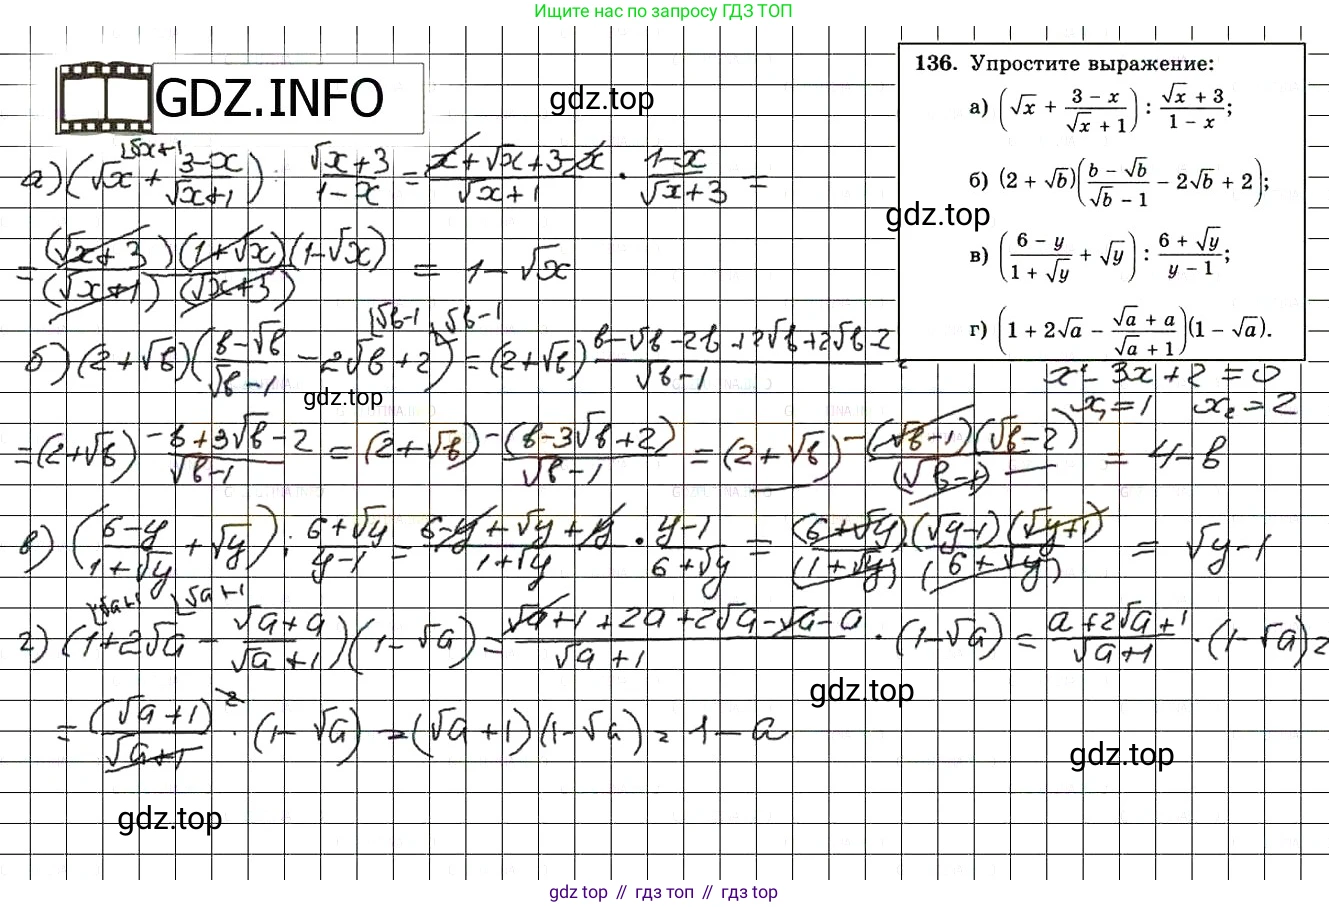 Ищите нас по запросу ГДЗ ТОП
GDZ.INFO
gdz.top
136. Упростите выражение:
а) (√x + (3 − x)/(√x + 1)) : (√x + 3)/(1 − x);
б) (2 + √b)((b − √b)/(√b − 1) − 2√b + 2);
в) ((6 − y)/(1 + √y) + √y) : (6 + √y)/(y − 1);
г) (1 + 2√a − (√a + a)/(√a + 1))(1 − √a).
gdz.top
а) (√x + (3−x)/(√x+1)) : (√x+3)/(1−x) = (x+√x+3−x)/(√x+1) · (1−x)/(√x+3) =
= (√x+3)(1+√x)(1−√x)/((√x+1)(√x+3)) = 1−√x
б) (2+√b)((b−√b)/(√b−1) − 2√b+2) = (2+√b) (b−√b−2b+2√b+2√b−2)/(√b−1) =
gdz.top
x² − 3x + 2 = 0
x₁ = 1 x₂ = 2
= (2+√b) (−b+3√b−2)/(√b−1) = (2+√b) −(b−3√b+2)/(√b−1) = (2+√b) −(√b−1)(√b−2)/(√b−1) = 4−b
в) ((6−y)/(1+√y) + √y) : (6+√y)/(y−1) = (6−y+√y+y)/(1+√y) · (y−1)/(6+√y) = (6+√y)(√y−1)(√y+1)/((1+√y)(6+√y)) = √y−1
г) (1+2√a − (√a+a)/(√a+1))(1−√a) = (√a+1+2a+2√a−√a−a)/(√a+1) · (1−√a) = (a+2√a+1)/(√a+1) · (1−√a) =
gdz.top
= (√a+1)²/(√a+1) · (1−√a) = (√a+1)(1−√a) = 1−a
gdz.top
gdz.top
gdz top // гдз топ // гдз top